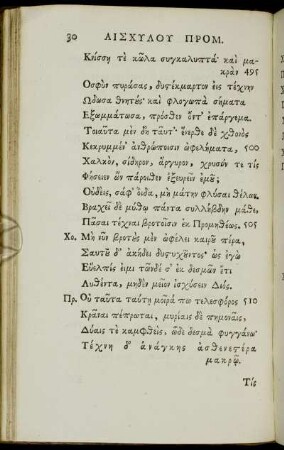 30 ΑΙΣΧΥΛΟΥ ΠΡΟΜ.
Κνίσσῃ τὲ κῶλα συγκαλυπτὰ· καὶ μα-
κρὰν 495
Οσφὺν πυράσας, δυςτέκμαρτον εἰς τέχνην
Ωδωσα θνητὺς· καὶ φλογωπὰ σήματα
Εξωμμάτωσα, πρόσθεν ὄντ' ἐπάργεμα.
Τοιαῦτα μὲν δὴ ταῦτ'· ἔνερθε δὲ χθονὸς
Κεκρυμμέν' ἀνθρώποισιν ὠφελήματα, 500
Χαλκὸν, σίδηρον, ἄργυρον, χρυσόν τε τίς
Φήσειεν ἂν πάροιθεν ἐξευρεῖν ἐμοῦ;
Ουδεὶς, σάφ' οἶδα, μὴ μάτην φλύσαι θέλων.
Βραχεῖ δὲ μύθῳ πάντα συλλήβδην μάθε,
Πᾶσαι τέχναι βροτοῖσιν ἐκ Προμηθέως. 505
Χο. Μὴ νῦν βροτοὺς μὲν ὠφέλει καιροῦ πέρα,
Σαυτοῦ δ' ἀκήδει δυςτυχοῦντος· ὡς ἐγὼ
Εὔελπίς εἰμι τῶνδέ σ' ἐκ δεσμῶν ἔτι
Λυθέντα, μηδὲν μεῖον ἰσχύσειν Διός.
Πρ. Οὐ ταῦτα ταύτῃ μοῖρά πω τελεσφόρος 510
Κρᾶναι πέπρωται, μυρίαις δὲ πημοναῖς,
Δύαις τὲ καμφθεὶς, ὧδε δεσμὰ φυγγάνω·
Τέχνη δ' ἀνάγκης ἀσθενεςέρα
μακρῷ.
Τίς